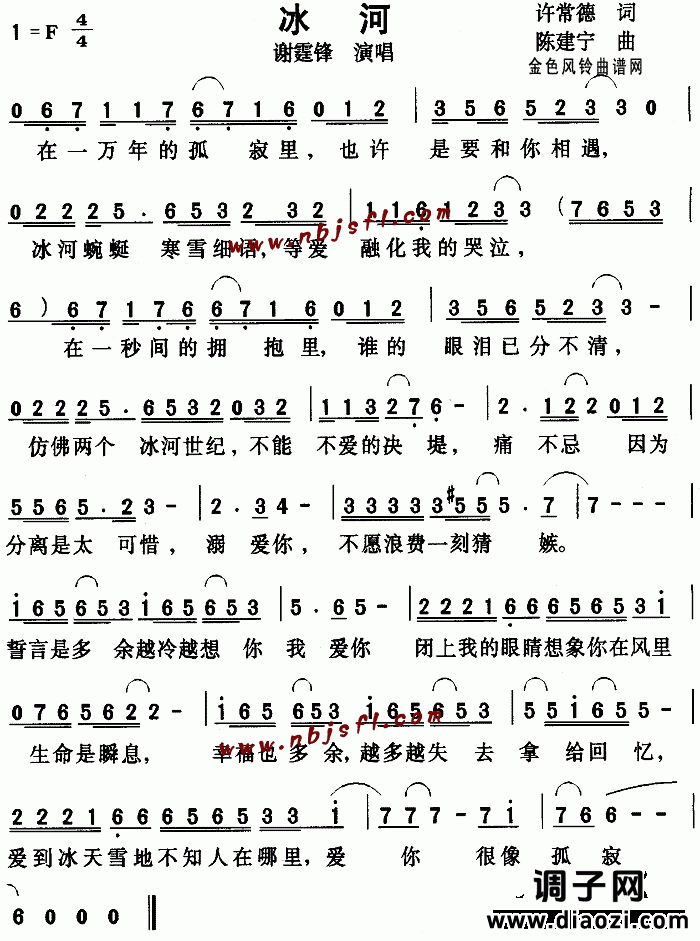 1=F 4/4 冰 河 许常德 词
谢霆锋 演唱 陈建宁 曲
金色风铃曲谱网
0 6 7 1 1 7 6 7 1 6 0 1 2 | 3 5 6 5 2 3 3 0 |
在一万年的孤 寂里，也许 是要和你相遇，
0 2 2 2 5. 6 5 3 2 3 2 | 1 1 6 1 2 3 3 (7 6 5 3
冰河蜿蜒 寒雪细语，等爱 融化我的哭泣，
www.nbjsfl.com
6) 6 7 1 7 6 6 7 1 6 0 1 2 | 3 5 6 5 2 3 3 - |
在一秒间的拥 抱里，谁的 眼泪已分不清，
0 2 2 2 5. 6 5 3 2 0 3 2 | 1 1 3 2 7 6 - | 2. 1 2 2 0 1 2 |
仿佛两个 冰河世纪，不能 不爱的决 堤，痛 不忌 因为
5 5 6 5. 2 3 - | 2. 3 4 - | 3 3 3 3 3 #5 5 5. 7 | 7 - - - |
分离是太 可惜，溺 爱你，不愿浪费一刻猜 嫉。
1 6 5 6 5 3 1 6 5 6 5 3 | 5. 6 5 - | 2 2 2 1 6 6 6 5 6 5 3 1 |
誓言是多 余越冷越想 你 我 爱你 闭上我的眼睛想象你在风里
0 7 6 5 6 2 2 - | 1 6 5 6 5 3 1 6 5 6 5 3 | 5 5 1 6 5 5 - |
生命是瞬息， 幸福也多余，越多越失 去 拿 给回 忆，
www.nbjsfl.com
2 2 2 1 6 6 6 5 6 5 3 3 1 | 7 7 7 - 7 1 | 7 6 6 - - |
爱到冰天雪地不知人在哪里，爱 你 很像 孤 寂
6 0 0 0 ‖
调子网
www.diaozi.com